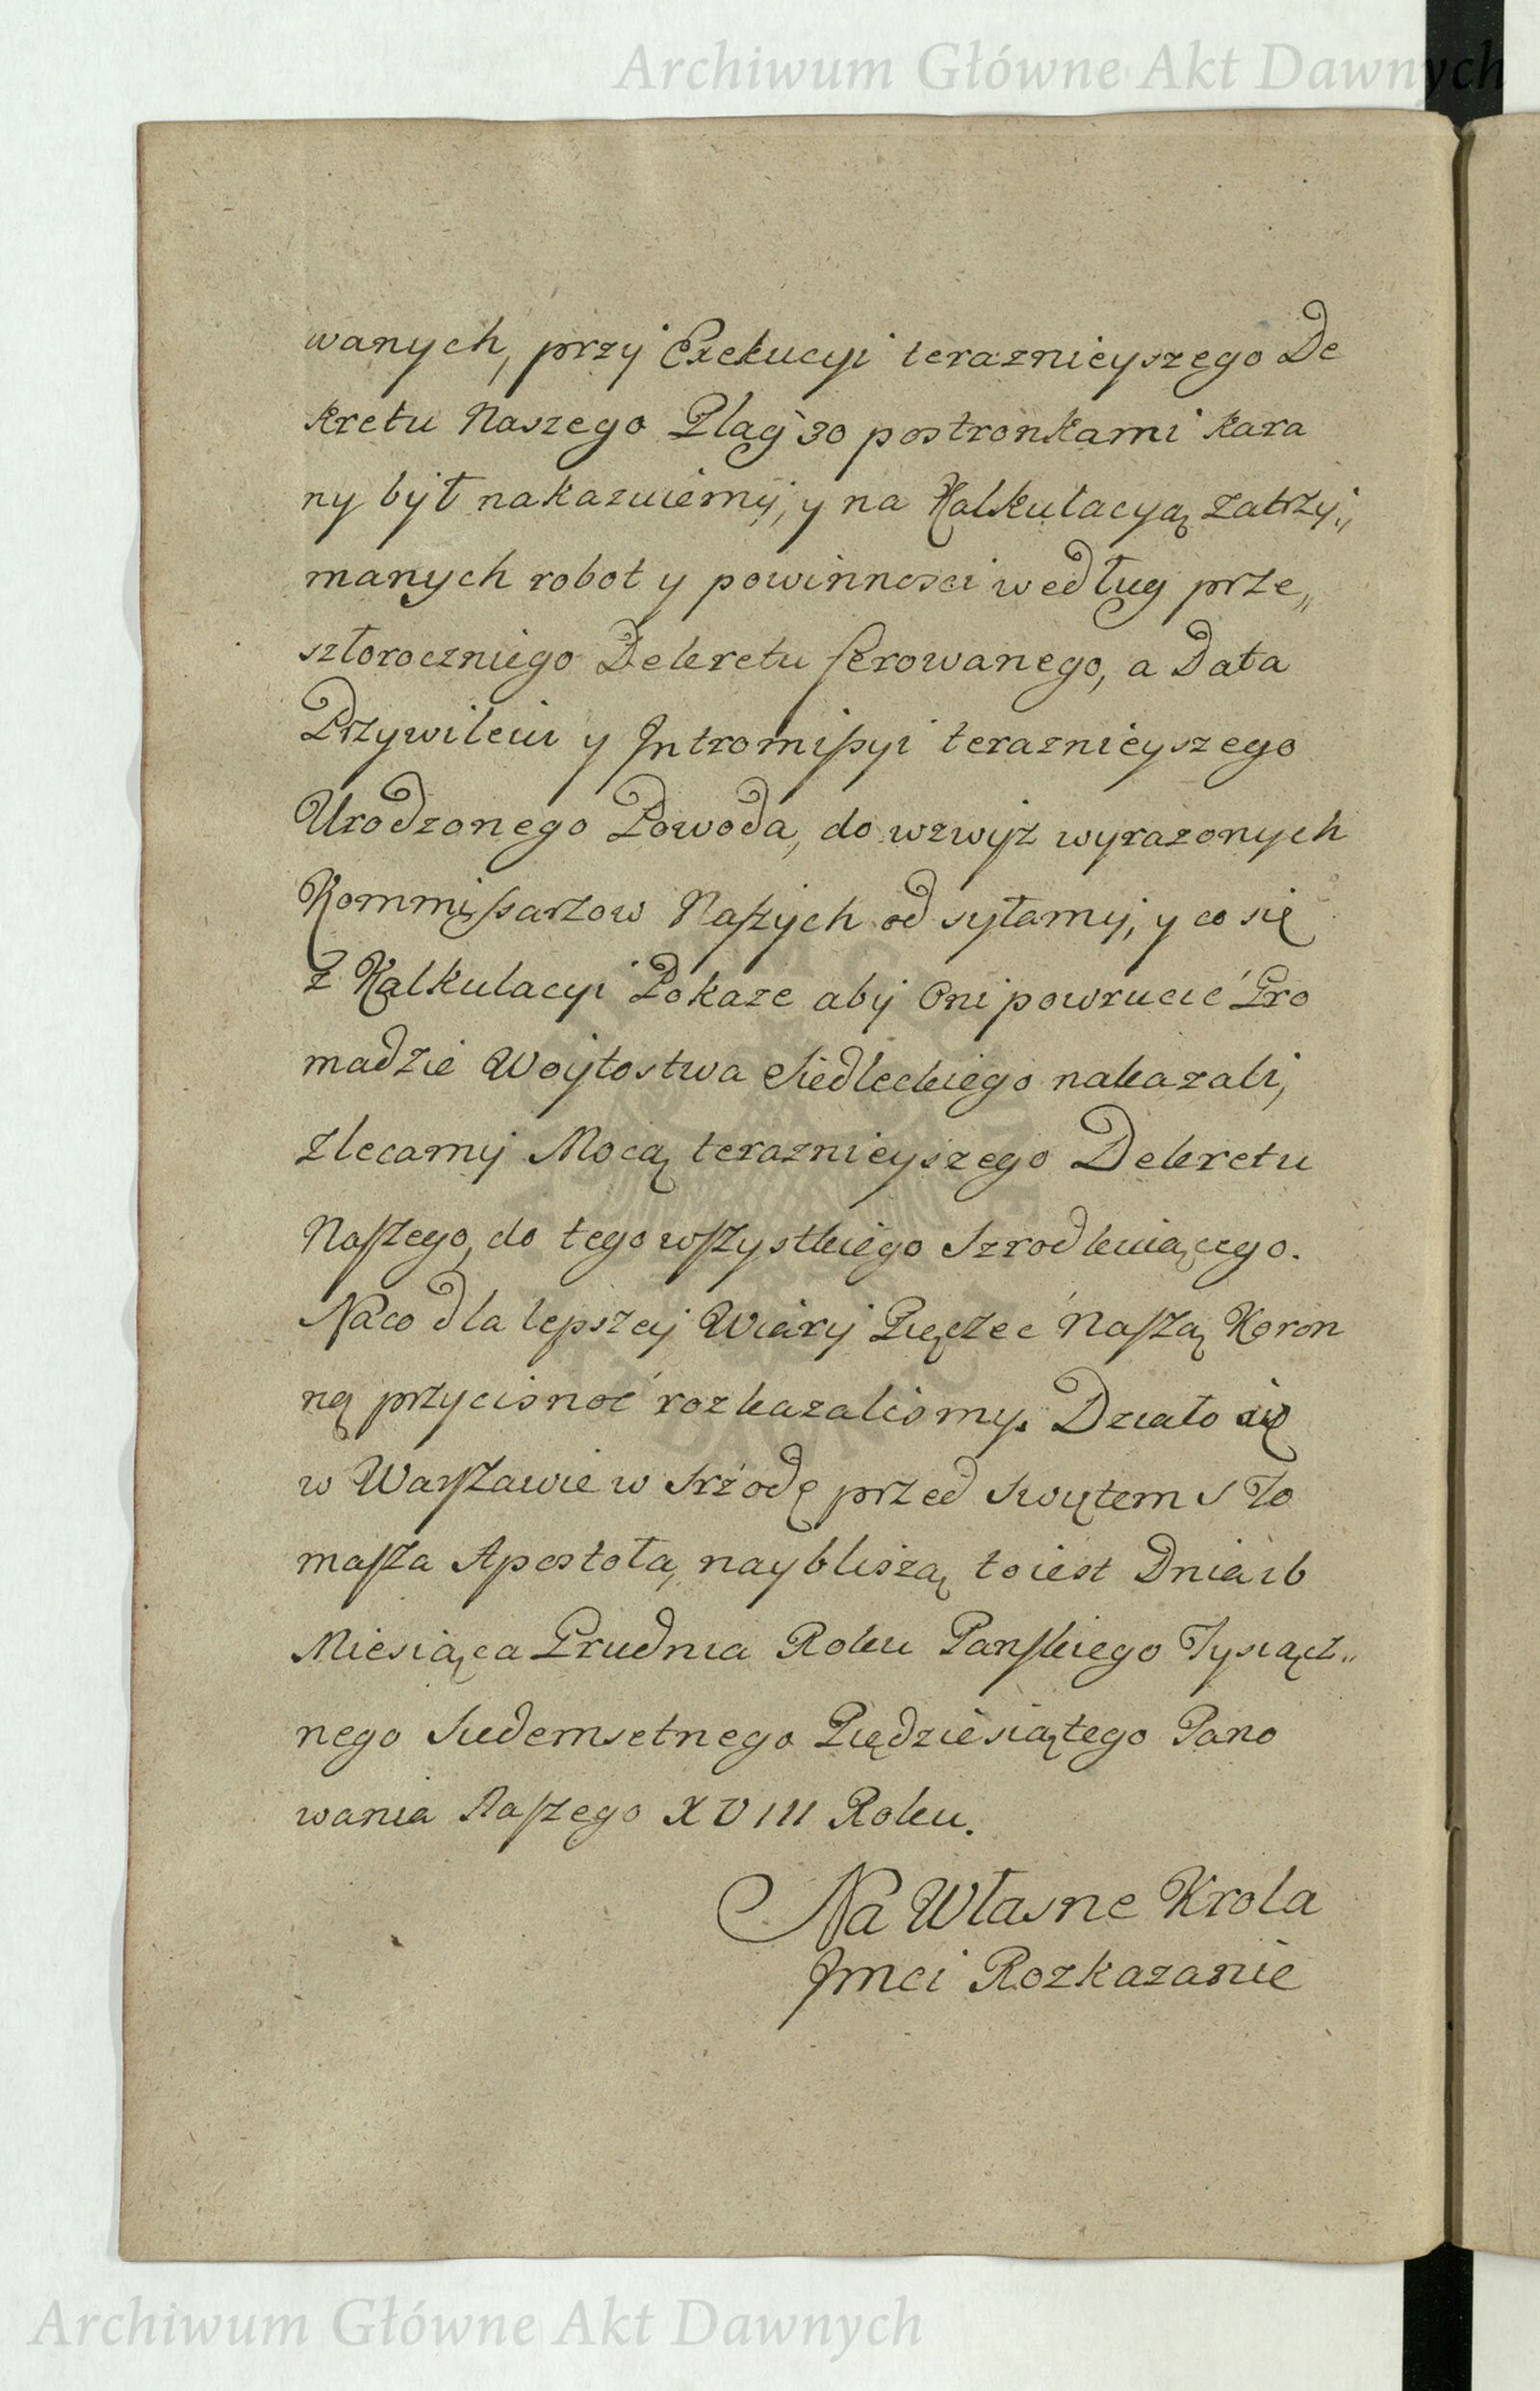 Archiwum Główne Akt Dawnych
wanych, przy Exekucyi teraznieyszego De
kretu Naszego Plag 30 postronkami kara
ny był nakazuiemy, y na Kalkulacyą zatrzy„
manych robot y powinnosci według prze„
szłoroczniego Dekretu ferowanego, a Data
Przywileiu y Intromissyi teraznieyszego
Urodzonego Powoda, do wzwyż wyrazonych
Kommissarzow Naszych odsyłamy, y co się
z Kalkulacyi Pokaze aby Oni powrucić Gro
madzie Woytostwa Siedleckiego nakazali,
zlecamy Mocą teraznieyszego Dekretu
Naszego, do tego wszystkiego Szrodkuiącego.
Na co dla lepszey Wiary Pięczec Naszą Koron
ną przycisnoć rozkazalismy. Działo się
w Warszawie w Srzodę przed Swiętem S To
masza Apostoła, naybliszą to iest Dnia 16
Miesiąca Grudnia Roku Panskiego Tysiącz„
nego Siedemsetnego Piędziesiątego Pano
wania Naszego XVIII Roku.
Na Własne Krola
Jmci Rozkazanie
Archiwum Główne Akt Dawnych